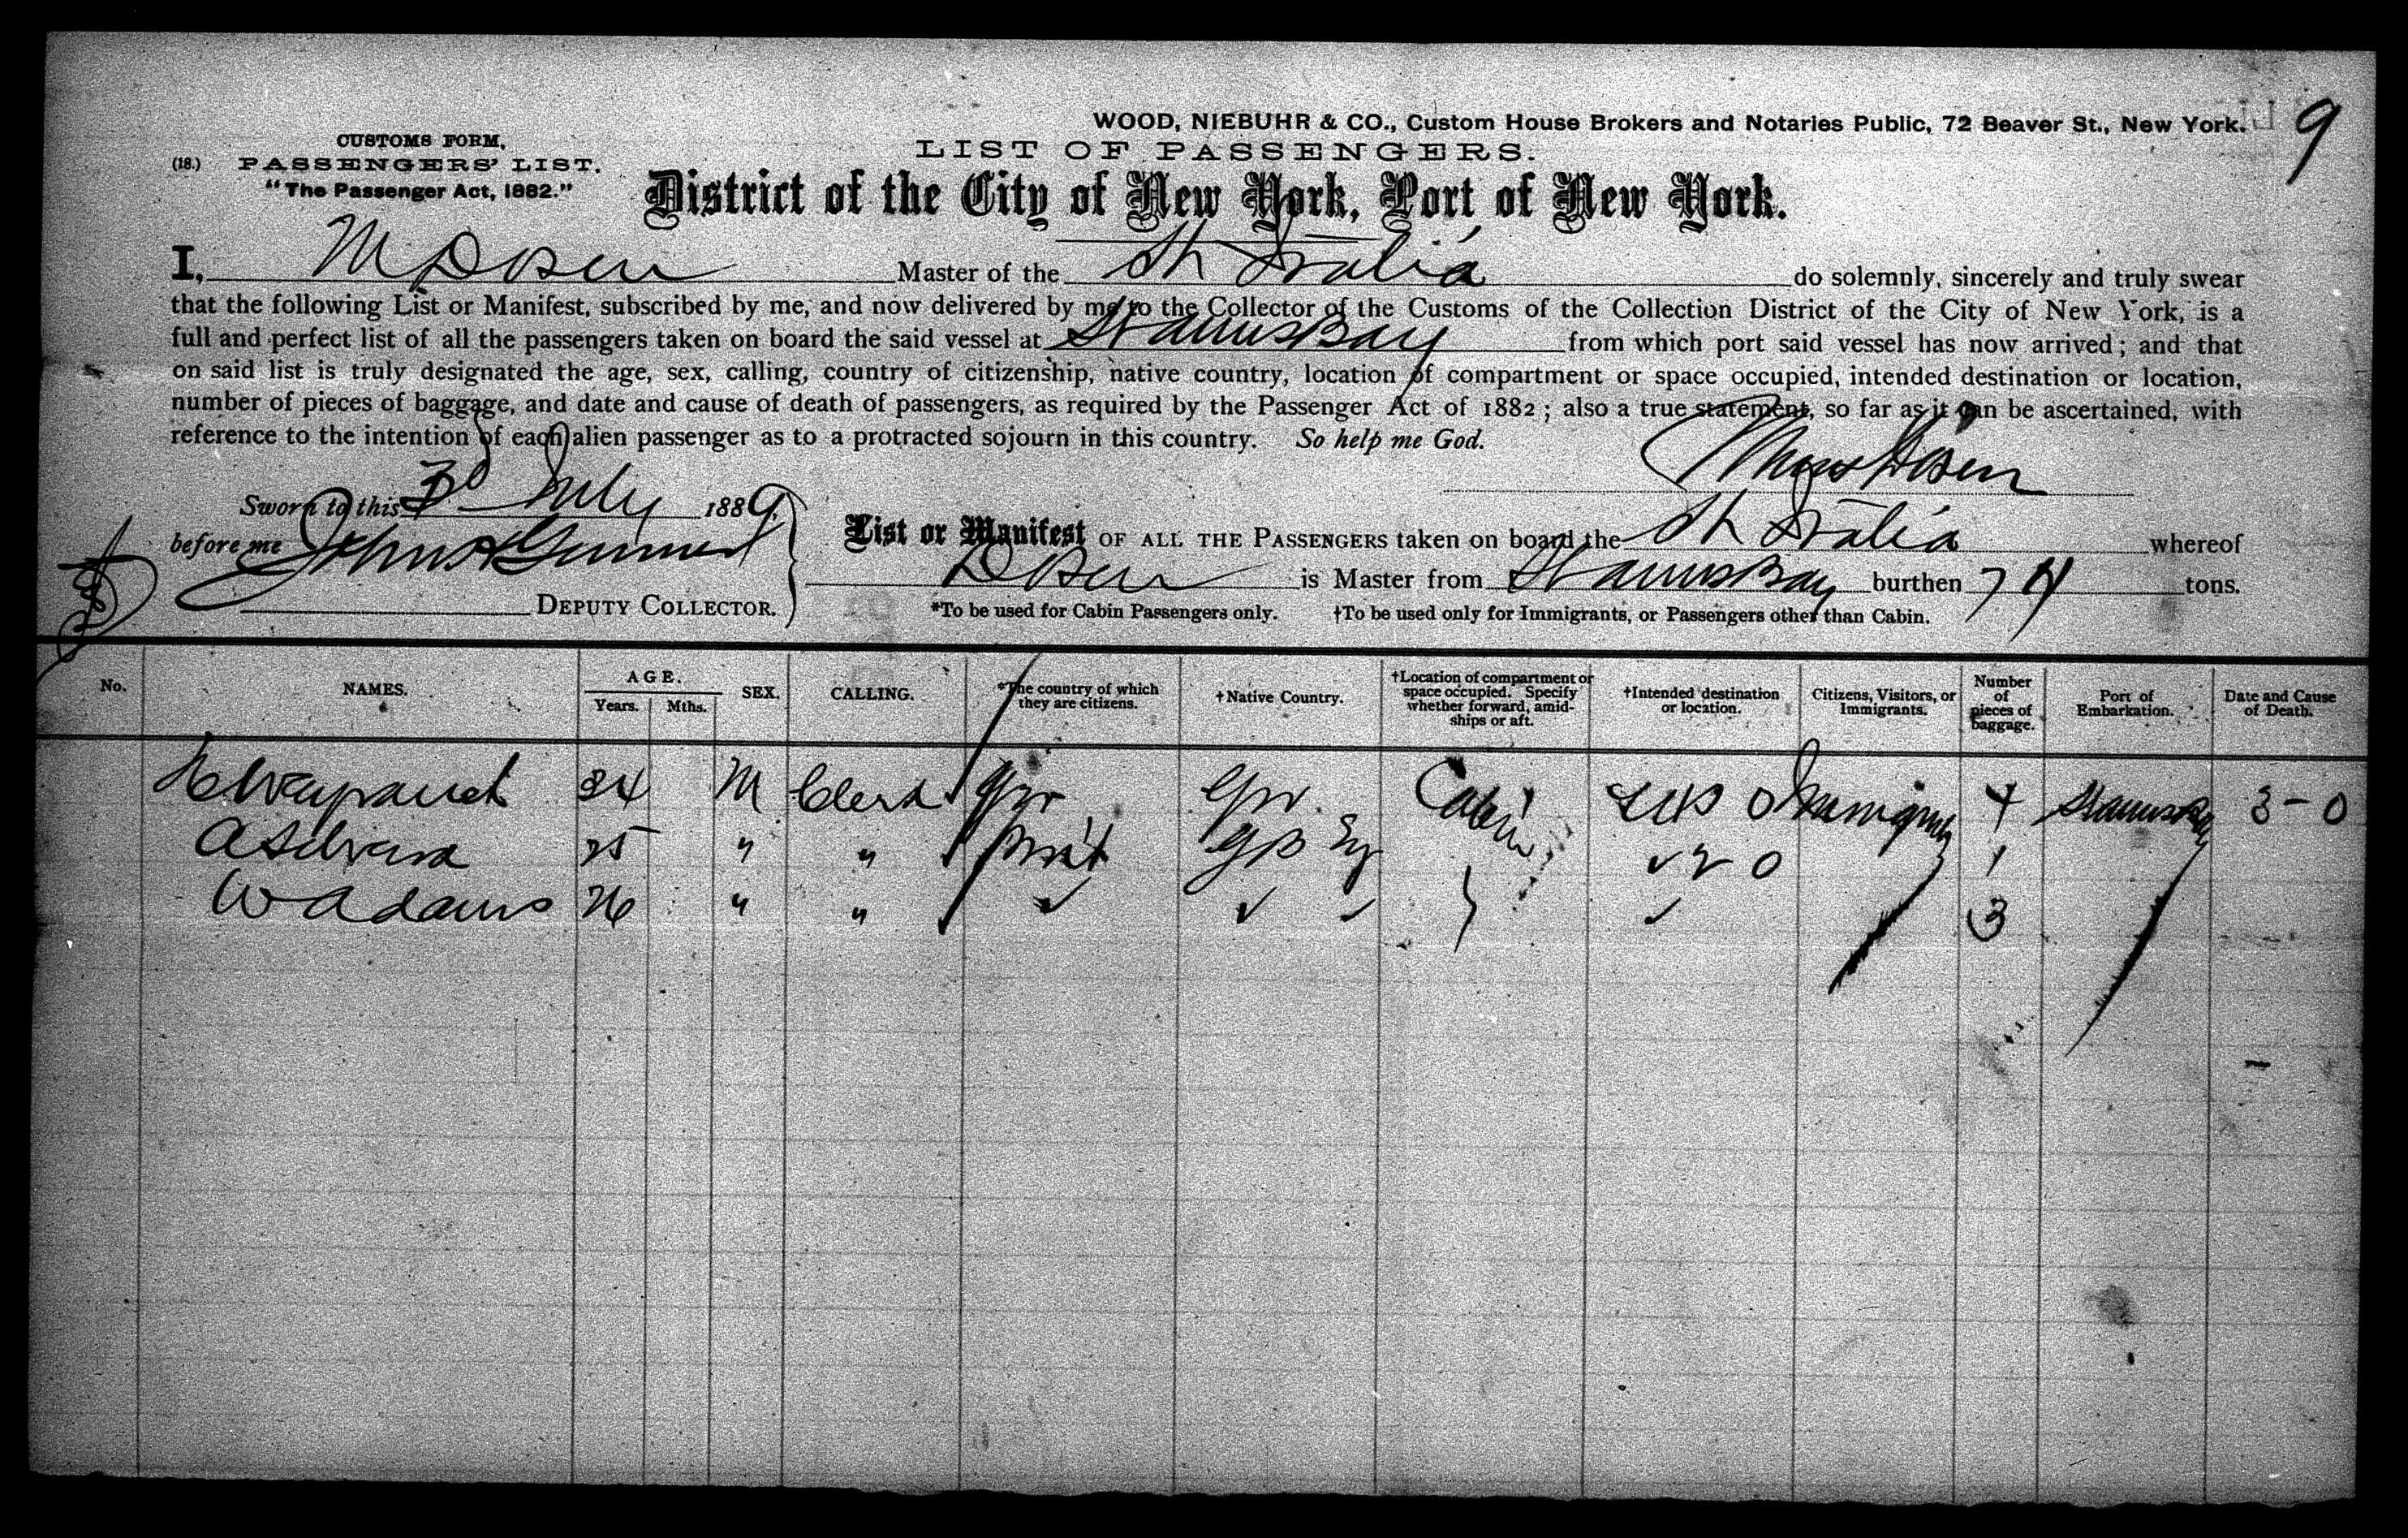 WOOD, NIEBUHR & CO., Custom House Brokers and Notaries Public, 72 Beaver St., New York.
9
CUSTOMS FORM,
(18.) PASSENGERS' LIST.
"The Passenger Act, 1882."
LIST OF PASSENGERS.
District of the City of New York, Port of New York.
I, M Dosen Master of the do solemnly, sincerely and truly swear
that the following List or Manifest, subscribed by me, and now delivered by me to the Collector of the Customs of the Collection District of the City of New York, is a
full and perfect list of all the passengers taken on board the said vessel at from which port said vessel has now arrived; and that
on said list is truly designated the age, sex, calling, country of citizenship, native country, location of compartment or space occupied, intended destination or location,
number of pieces of baggage, and date and cause of death of passengers, as required by the Passenger Act of 1882; also a true statement, so far as it can be ascertained, with
reference to the intention of each alien passenger as to a protracted sojourn in this country. So help me God.
Sworn to this July 1889
before me John
DEPUTY COLLECTOR.
List or Manifest OF ALL THE PASSENGERS taken on board the whereof
Dosen is Master from burthen 74 tons.
*To be used for Cabin Passengers only. †To be used only for Immigrants, or Passengers other than Cabin.
No. NAMES. AGE. Years. Mths. SEX. CALLING. *The country of which they are citizens. †Native Country. †Location of compartment or space occupied. Specify whether forward, amidships or aft. †Intended destination or location. Citizens, Visitors, or Immigrants. Number of pieces of baggage. Port of Embarkation. Date and Cause of Death.
24 M Clerk Ger Ger Cabin 4 3-0
25 " " 1
W Adams 26 " " ✓ ✓ ✓ ✓ 3